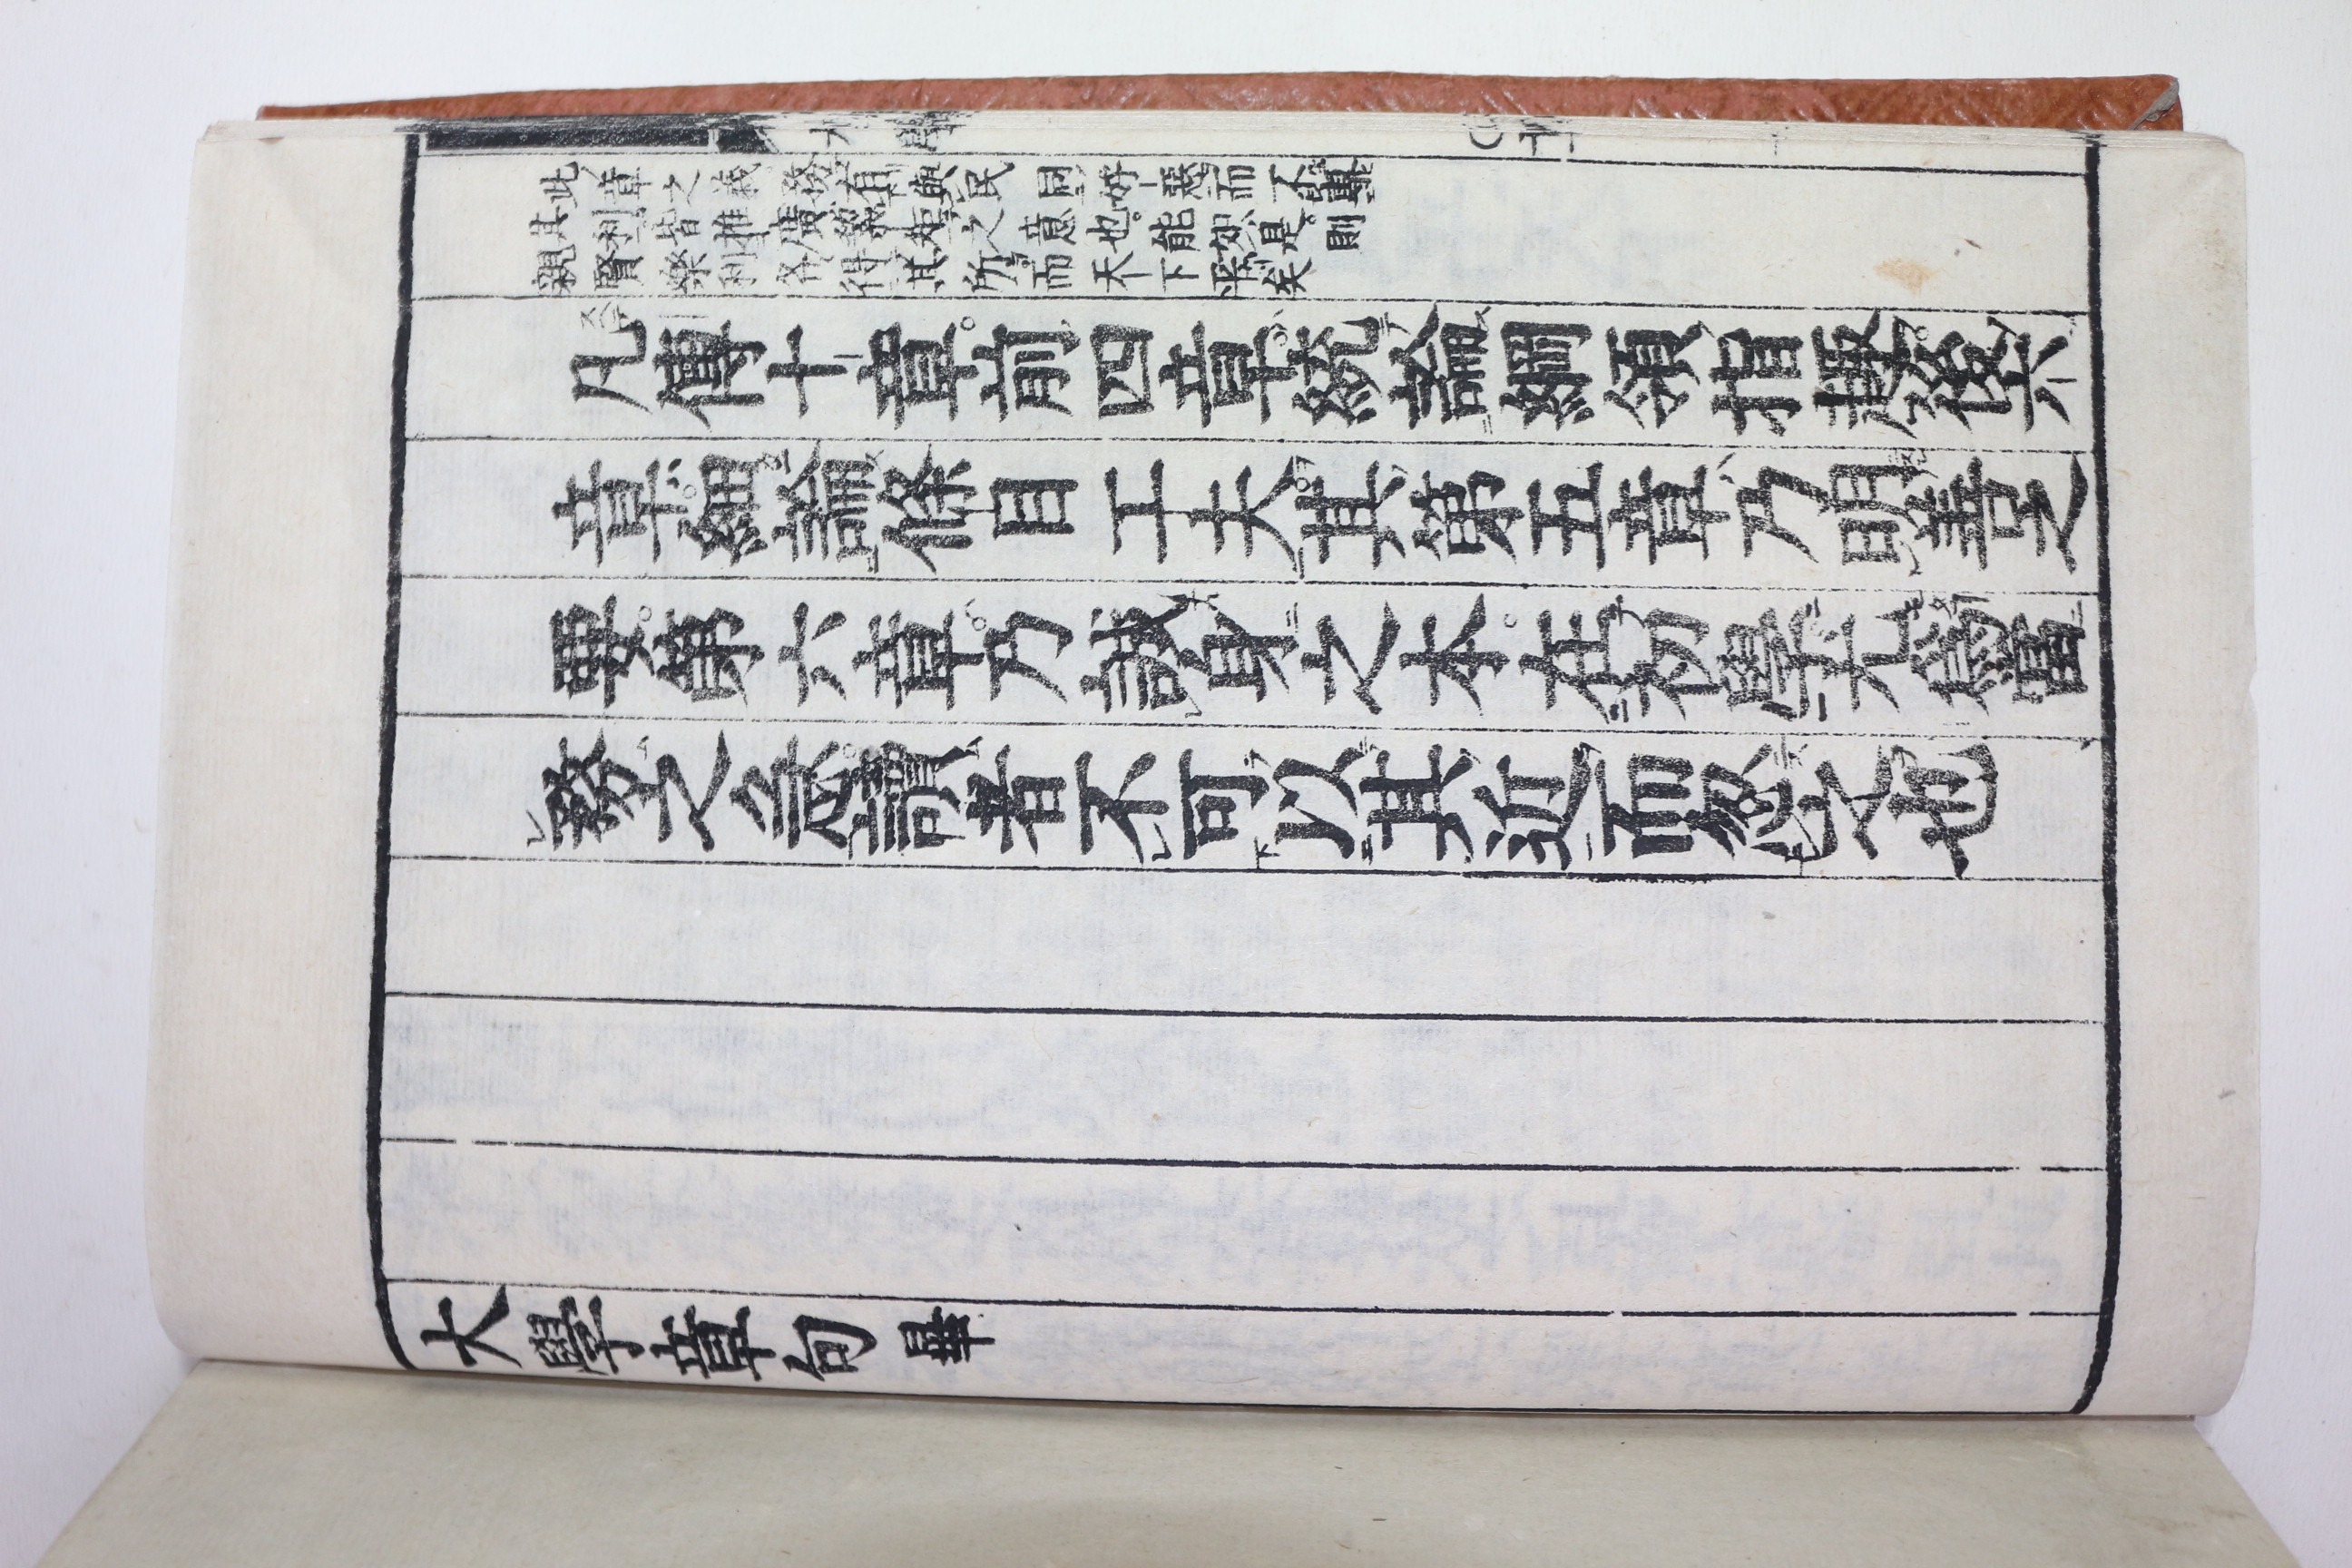 此章之義務在與民同好惡而不專
其利皆推廣絜矩之意也能如是則
親賢樂利各得其所而天下平矣
凡傳十章。前四章。統論綱領指趣。後六
章。細論條目工夫。其第五章乃明善之
要。第六章。乃誠身之本。在初學尤爲當
務之急。讀者不可以其近而忽之也
大學章句 畢